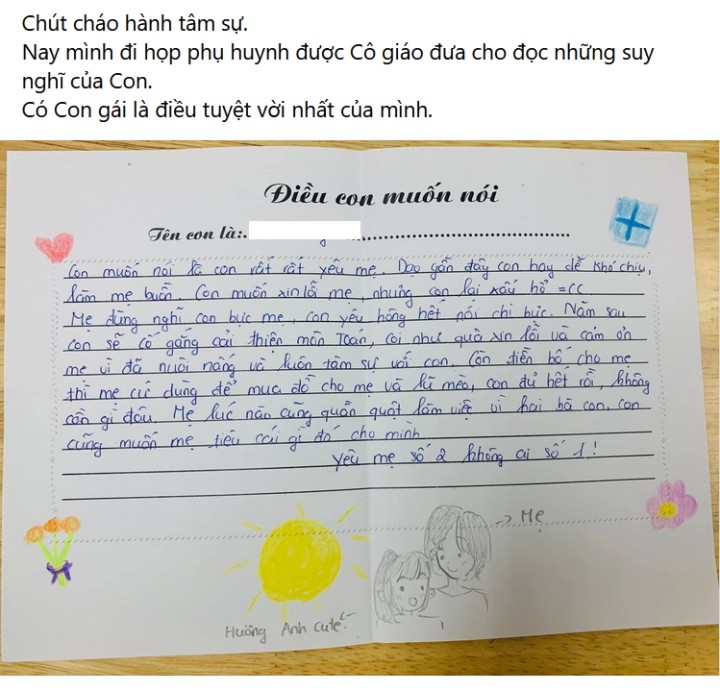 Chút cháo hành tâm sự.
Nay mình đi họp phụ huynh được Cô giáo đưa cho đọc những suy
nghĩ của Con.
Có Con gái là điều tuyệt vời nhất của mình.
Điều con muốn nói
Tên con là:
Con muốn nói là con rất rất yêu mẹ. Dạo gần đây con hay dễ khó chịu,
làm mẹ buồn. Con muốn xin lỗi mẹ, nhưng con lại xấu hổ =CC
Mẹ đừng nghĩ con bực mẹ, con yêu hông hết nói chi bực. Năm sau
con sẽ cố gắng cải thiện môn Toán, coi như quà xin lỗi và cảm ơn
mẹ vì đã nuôi nấng và luôn tâm sự với con. Còn tiền bố cho mẹ
thì mẹ cứ dùng để mua đồ cho mẹ và lũ mèo, con đủ hết rồi, không
cần gì đâu. Mẹ lúc nào cũng quần quật làm việc vì hai bà con, con
cũng muốn mẹ tiêu cái gì đó cho mình
Yêu mẹ số 2 không ai số 1!
-> Mẹ
Hương Anh cute